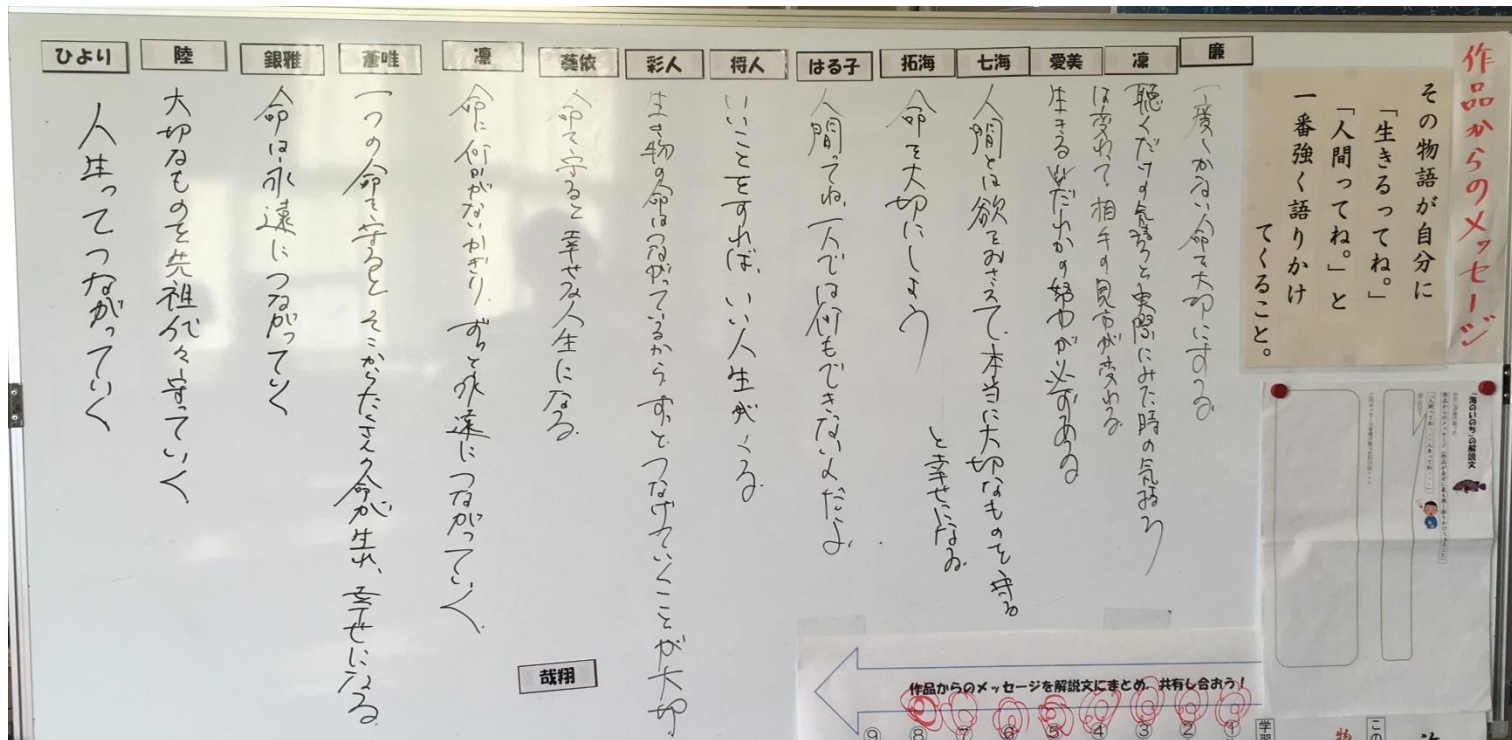 作品からのメッセージ
その物語が自分に
「生きるってね。」
「人間ってね。」と
一番強く語りかけ
てくること。
廉
一度しかない命を大切にする。
凛
聴くだけの気持ちと実際にみた時の気持ち
は変わって、相手の見方が変わる
愛美
生きるにはだれかの協力が必ずある
七海
人間とは欲をおさえて、本当に大切なものを守る
と幸せになる。
拓海
命を大切にしよう
はる子
人間ってね、一人では何もできないんだよ。
将人
いいことをすれば、いい人生がくる
彩人
生き物の命はつながっているから ずっとつなげていくことが大切
葵依
命を守ると幸せな人生になる
凛
命に何かがないかぎり、ずっと永遠につながっていく。
唯
一つの命を守ると そこからたくさんの命が生れ、幸せになる
銀雅
命は永遠につながっていく
陸
大切なものを先祖代々守っていく
ひより
人生ってつながっていく
哉翔
「海のいのち」の解説文
作品からのメッセージを解説文にまとめ、共有し合おう！
① ② ③ ④ ⑤ ⑥ ⑦ ⑧ ⑨
学習
この
物